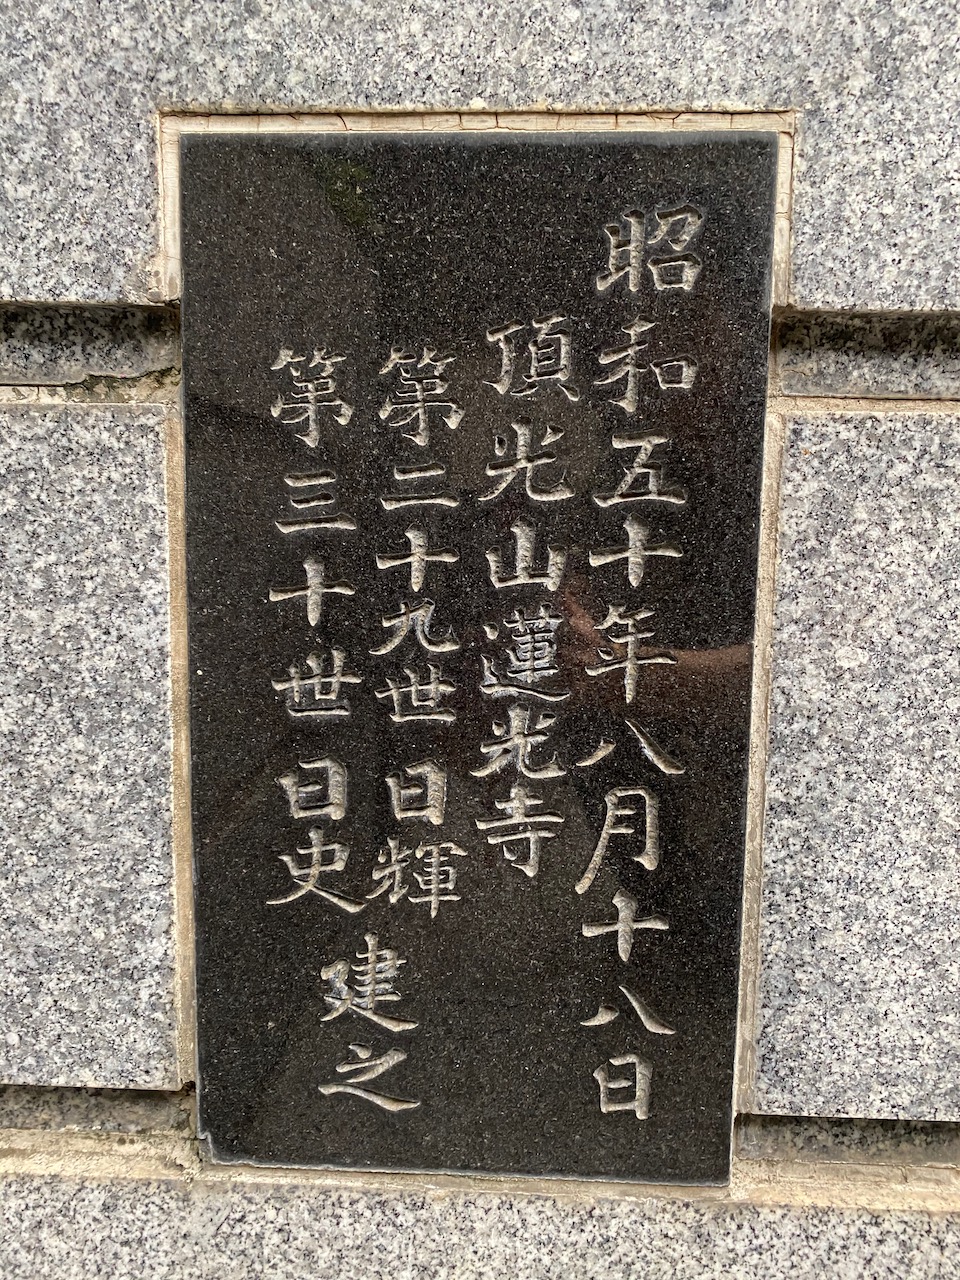 昭和五十年八月十八日
頂光山蓮光寺
第二十九世日輝
第三十世日史
建之